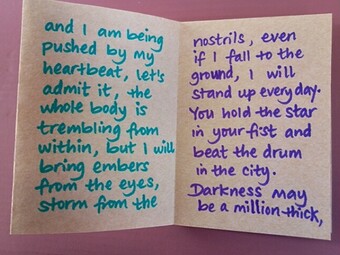 and I am being
pushed by my
heartbeat, let's
admit it, the
whole body is
trembling from
within, but I will
bring embers
from the eyes,
storm from the
nostrils, even
if I fall to the
ground, I will
stand up every day.
You hold the star
in your fist and
beat the drum
in the city.
Darkness may
be a million-thick,